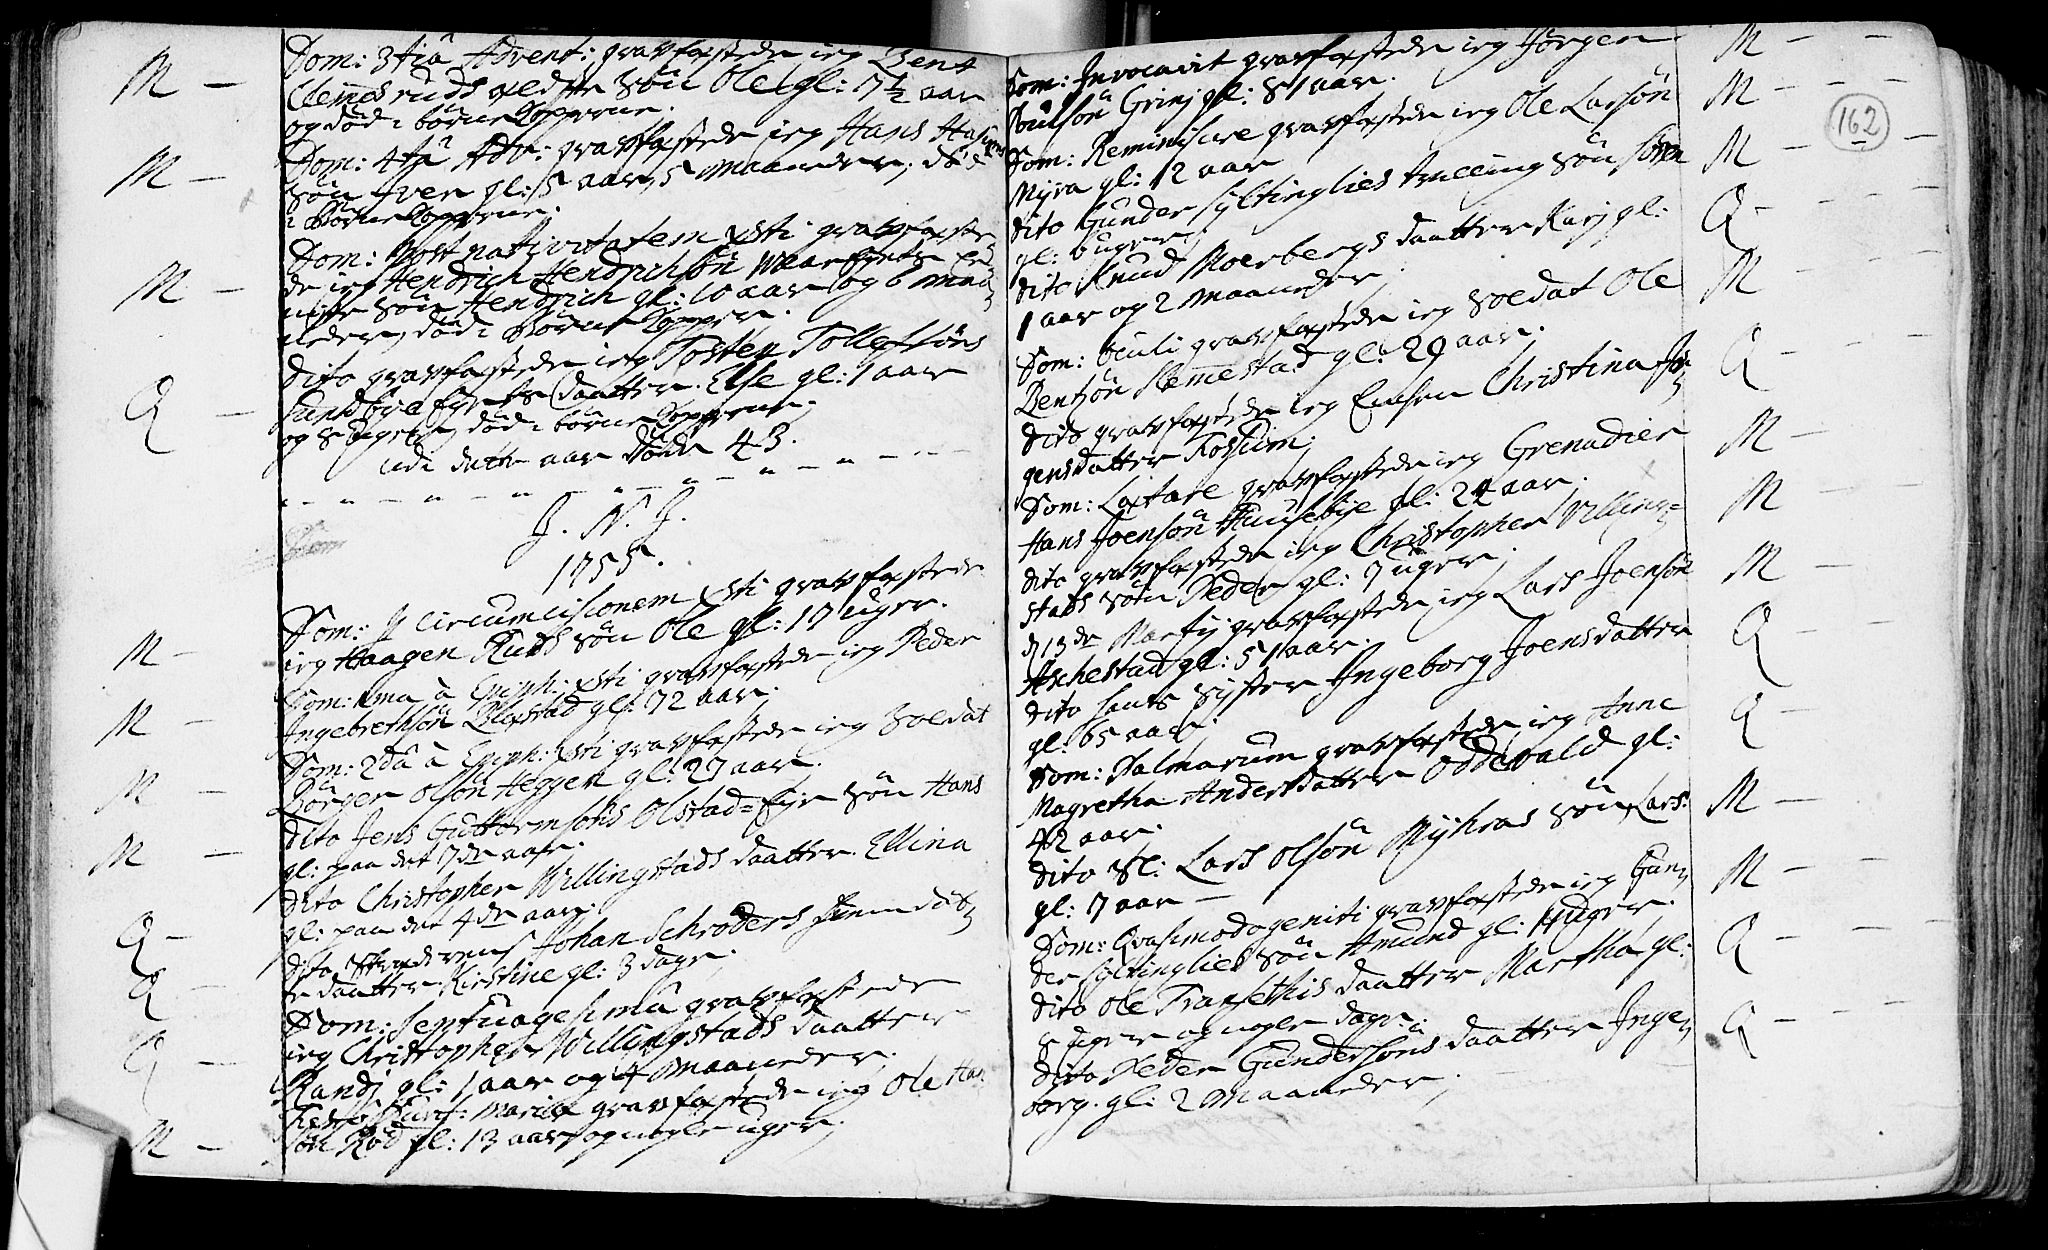 Dom: 3tia Advent: gravfæstede ieg Bent
Clemmesruds ældste Søn Ole gl: 7½ aar
og død i børne Kopperne.
M —
Dom: 4ta Adv: gravfæstede ieg Hans
Søn Iver gl: 5 aar, 5 Maaneder, død
i Børne Kopperne.
M —
Dom: Post nativitatem Xsti gravfæste
de ieg Hendrich Hendrichsön
Søn Hendrich gl: 10 aar og 6 maa
neder, död i Börne Kopper.
M —
dito gravfæstede ieg Tosten Tollefsöns
Sundbye Eyets daatter Else gl: 1 aar
og 8 uger, död i börne Kopperne,
Q —
udi dette aar döde 43.
J. N. J.
1755.
Dom: p circumcisionem Xsti gravfæstede
ieg Haagen Ruds Sön Ole gl: 17 uger.
M —
Dom: 1ma à Epiph: Xsti gravfæstede ieg Peder
Ingebrethsön gl: 72 aar.
M —
Dom: 2da à Epiph: Xsti gravfæstede ieg Soldat
Börger Olsön Heggen gl: 27 aar.
M —
dito Jens Guttormsöns Olstad-Eye Sön Hans
gl: paa det 7de aar.
M —
dito Christopher Willingstads daatter Ellina
gl: paa det 4de aar.
Q —
dito Johan Schröders
daatter Kirstine gl: 3 dage;
Q —
Dom: Septuagesima gravfæstede
ieg Christopher Willingstads daatter
Randj gl: 1 aar og 4 Maaneder.
Q —
Festo Purif: Mariæ gravfæstede ieg Ole Han
sön Röd gl: 13 aar og nogle uger;
M —
162
Dom: Invocavit gravfæstede ieg Jörgen
Poulsön Grinj gl: 81 aar.
M —
Dom: Reminiscere gravfæstede ieg Ole Larsön
Myra gl: 12 aar
M —
dito Gunder Syltinglies tvilling Sön Sören
gl: 6 uger;
M —
dito Knud Moerbergs daatter Karj gl:
1 aar og 2 Maaneder,
Q —
Dom: Oculi gravfæstede ieg Soldat Ole
Bentsön Slemmestad gl: 29 aar.
M —
dito gravfæstede ieg Christina Jör
gensdatter Fossum;
Q —
Dom: Lætare gravfæstede ieg Grenadier
Hans Joensön Huusebye gl: 22 aar.
M —
dito gravfæstede ieg Christopher Villing
stads Sön Peder gl: 7 uger;
M —
d 13de Martij gravfæstede ieg Lars Joensön
Aschestad gl: 51 aar.
M —
dito hans Syster Ingeborg Joensdatter
gl: 65 aar;
Q —
Dom: Palmarum gravfæstede ieg Anne
Magretha Andersdatter Oddevald gl:
42 aar.
Q —
dito Sl: Lars Olsön Myhras Sön Lars:
gl: 7 aar —
M —
Dom: Qvasimodogeniti gravfæstede ieg Gun
der Syltinglies Sön Amund gl: 11 uger.
M —
dito Ole Tranpethis daatter Martha gl:
uger og nogle dage:
Q —
dito Peder Gundersöns daatter Inge
borg. gl: 2 Maaneder;
Q —